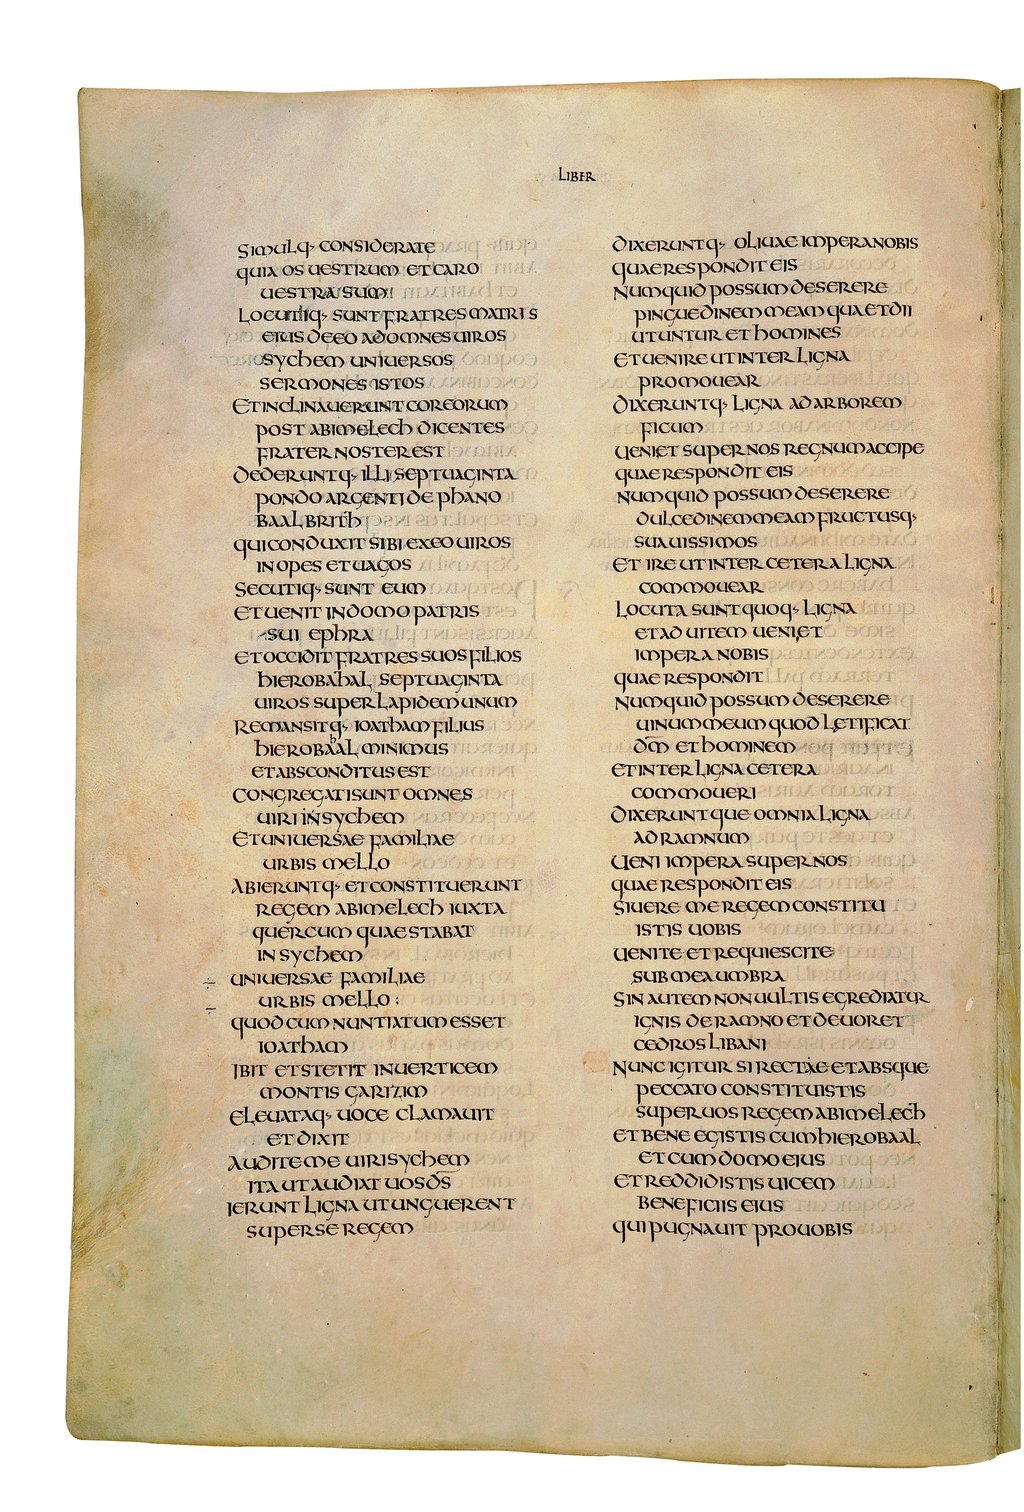 LIBER
SIMULQ· CONSIDERATE
QUIA OS UESTRUM ET CARO
UESTRA SUM
LOCUTIQ· SUNT FRATRES MATRIS
EIUS DE EO AD OMNES UIROS
SYCHEM UNIUERSOS
SERMONES ISTOS
ET INCLINAUERUNT COR EORUM
POST ABIMELECH DICENTES
FRATER NOSTER EST
DEDERUNTQ· ILLI SEPTUAGINTA
PONDO ARGENTI DE PHANO
BAAL BRITH
QUI CONDUXIT SIBI EX EO UIROS
INOPES ET UAGOS
SECUTIQ· SUNT EUM
ET UENIT IN DOMO PATRIS
SUI EPHRA
ET OCCIDIT FRATRES SUOS FILIOS
HIEROBAHAL SEPTUAGINTA
UIROS SUPER LAPIDEM UNUM
REMANSITQ· IOATHAM FILIUS
HIEROBAʰAL MINIMUS
ET ABSCONDITUS EST
CONGREGATI SUNT OMNES
UIRI IN SYCHEM
ET UNIUERSAE FAMILIAE
URBIS MELLO
ABIERUNTQ· ET CONSTITUERUNT
REGEM ABIMELECH IUXTA
QUERCUM QUAE STABAT
IN SYCHEM
÷ UNIUERSAE FAMILIAE
URBIS MELLO :
÷ QUOD CUM NUNTIATUM ESSET
IOATHAM
IBIT ET STETIT IN UERTICEM
MONTIS GARIZIM
ELEUATAQ· UOCE CLAMAUIT
ET DIXIT
AUDITE ME UIRI SYCHEM
ITA UT AUDIAT UOS D̅S̅
IERUNT LIGNA UT UNGUERENT
SUPER SE REGEM
DIXERUNTQ· OLIUAE IMPERA NOBIS
QUAE RESPONDIT EIS
NUMQUID POSSUM DESERERE
PINGUEDINEM MEAM QUA ET DII
UTUNTUR ET HOMINES
ET UENIRE UT INTER LIGNA
PROMOUEAR
DIXERUNTQ· LIGNA AD ARBOREM
FICUM
UENI ET SUPER NOS REGNUM ACCIPE
QUAE RESPONDIT EIS
NUMQUID POSSUM DESERERE
DULCEDINEM MEAM FRUCTUSQ·
SUAUISSIMOS
ET IRE UT INTER CETERA LIGNA
COMMOUEAR
LOCUTA SUNT QUOQ· LIGNA
ET AD UITEM UENI ET
IMPERA NOBIS
QUAE RESPONDIT
NUMQUID POSSUM DESERERE
UINUM MEUM QUOD LETIFICAT
D̅M̅ ET HOMINEM
ET INTER LIGNA CETERA
COMMOUERI
DIXERUNTQUE OMNIA LIGNA
AD RAMNUM
UENI IMPERA SUPER NOS
QUAE RESPONDIT EIS
SI UERE ME REGEM CONSTITU
ISTIS UOBIS
UENITE ET REQUIESCITE
SUB MEA UMBRA
SIN AUTEM NON UULTIS EGREDIATUR
IGNIS DE RAMNO ET DEUORET
CEDROS LIBANI
NUNC IGITUR SI RECTAE ET ABSQUE
PECCATO CONSTITUISTIS
SUPER UOS REGEM ABIMELECH
ET BENE EGISTIS CUM HIEROBAAL
ET CUM DOMO EIUS
ET REDDIDISTIS UICEM
BENEFICIIS EIUS
QUI PUGNAUIT PRO UOBIS